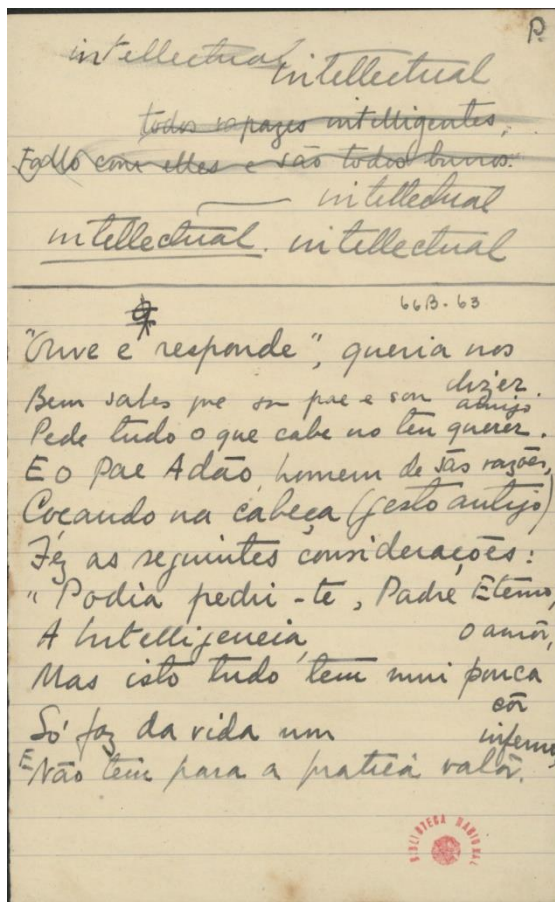 P.
intellectual intellectual
todos rapazes intelligentes,
Fallo com elles e são todos burros.
intellectual
intellectual. intellectual
66B-63
"Ouve e responde", queria nos dizer.
Bem sabes que sou pae e sou amigo.
Pede tudo o que cabe no teu querer.
E o Pae Adão, homem de sãs razões,
Coçando na cabeça (gesto antigo)
Fez as seguintes considerações:
"Podia pedir-te, Padre Eterno,
A Intelligencia, o amôr,
Mas isto tudo tem mui pouca côr
Só faz da vida um inferno,
E Não tem para a pratica valôr.
BIBLIOTECA NACIONAL